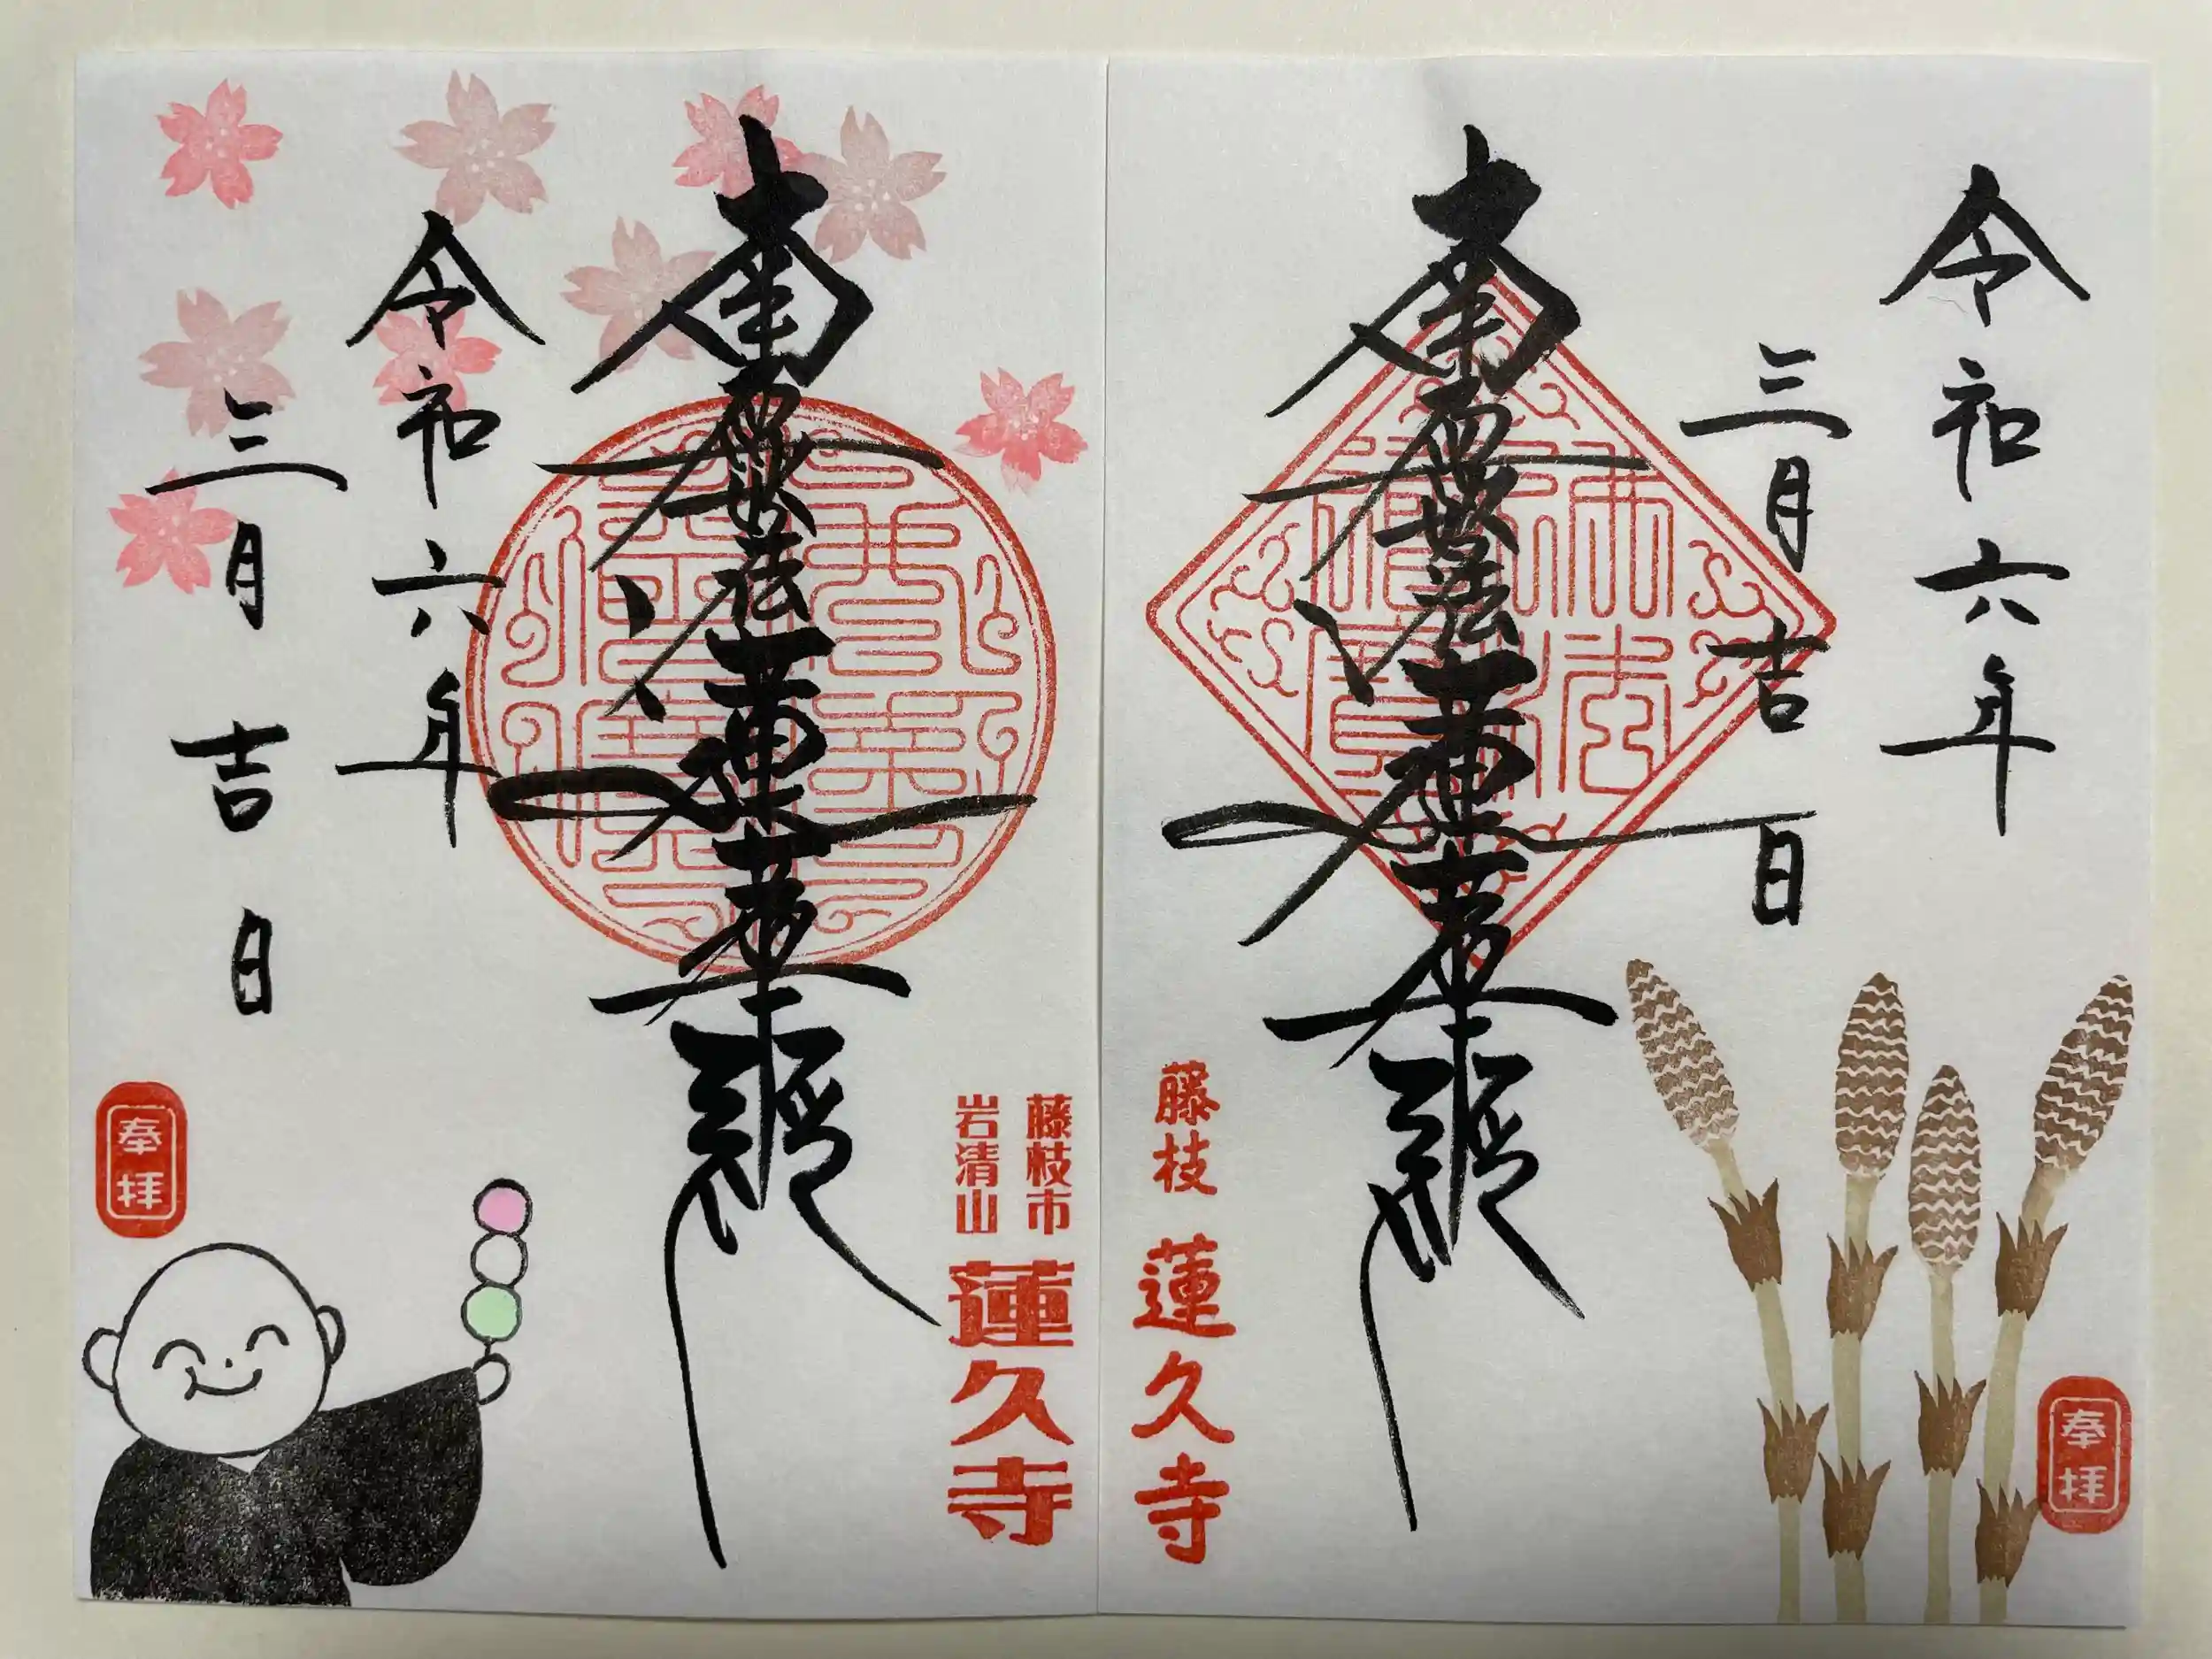 令和六年
三月吉日
奉拝
南無妙法蓮華経
佛法僧寶
藤枝 蓮久寺
藤枝市
岩清山
蓮久寺
南無妙法蓮華経
令和六年
三月吉日
奉拝